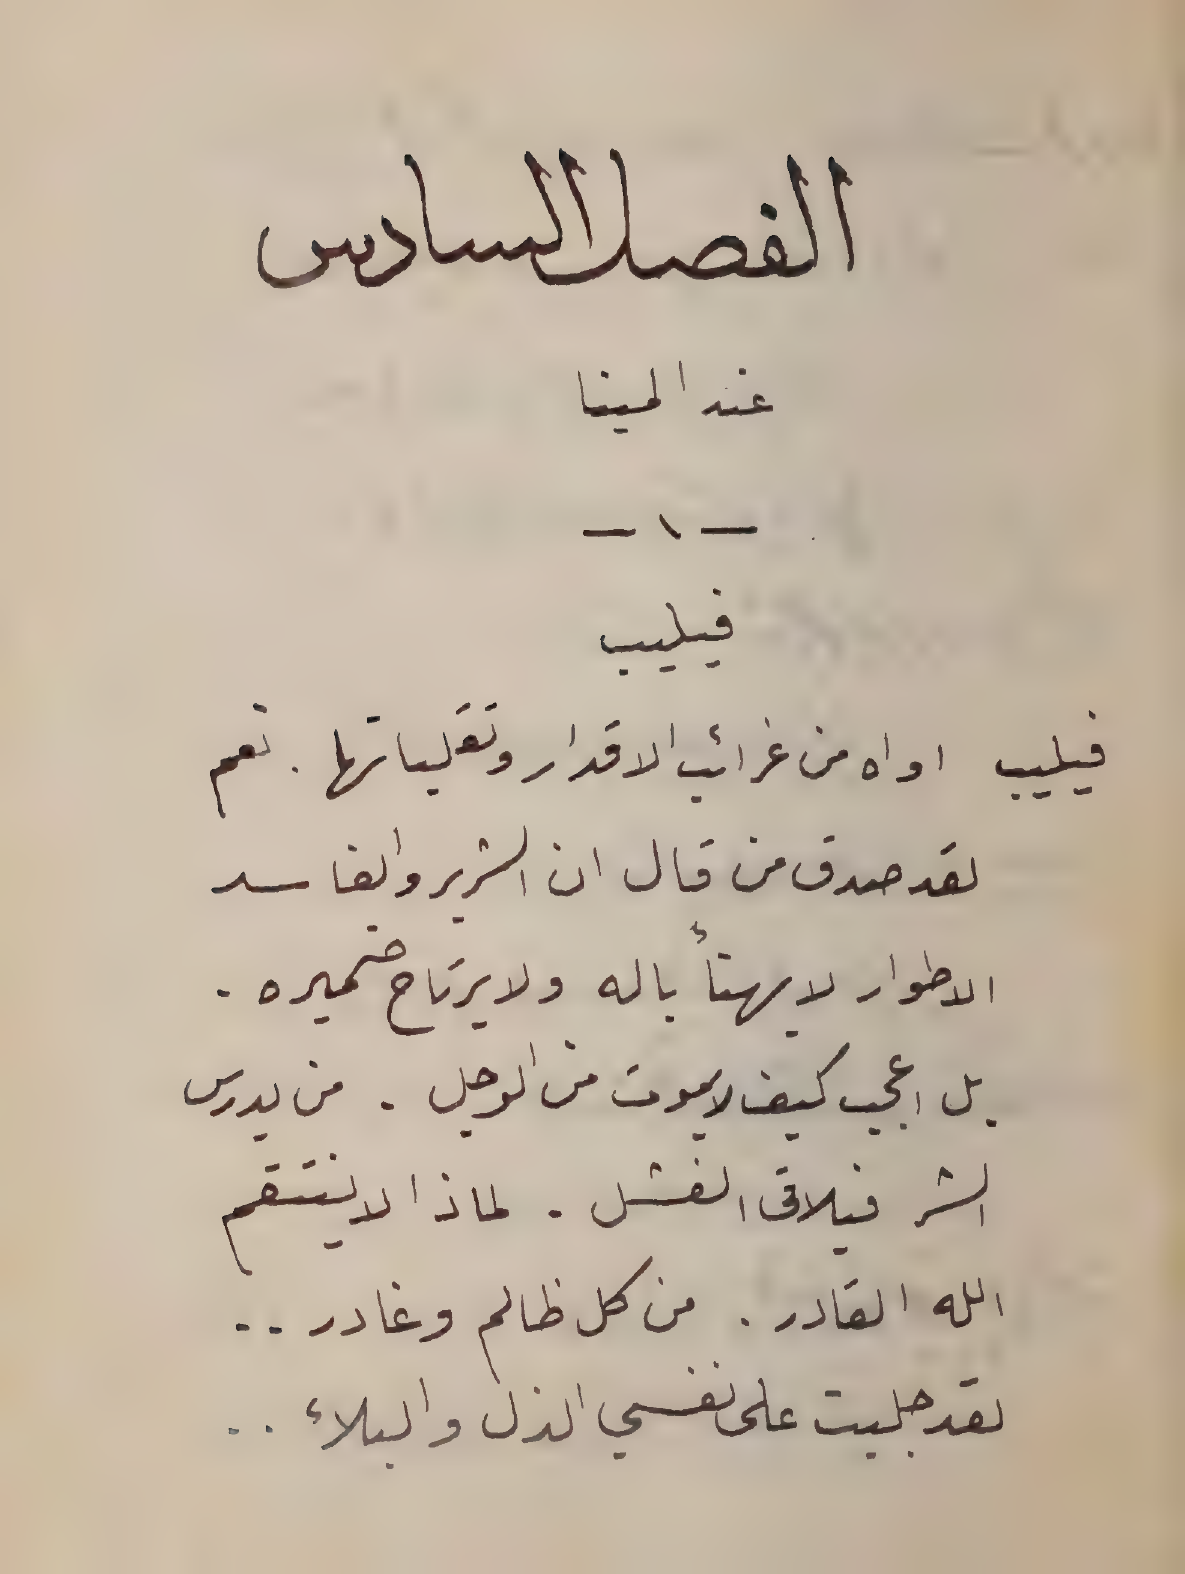 الفصل السادس
عند المينا
— ١ —
فيليب
فيليب اواه من غرائب الاقدار وتقلباتها . نعم
لقد صدق من قال ان الشرير والفاسد
الاطوار لا يهنأ باله ولا يرتاح ضميره .
بل اعجب كيف لا يموت من الوجل . من يدرس
الشر فيلاقى الفشل . لماذا لا ينتقم
الله القادر . من كل ظالم وغادر ..
لقد جلبت على نفسي الذل والبلاء ..